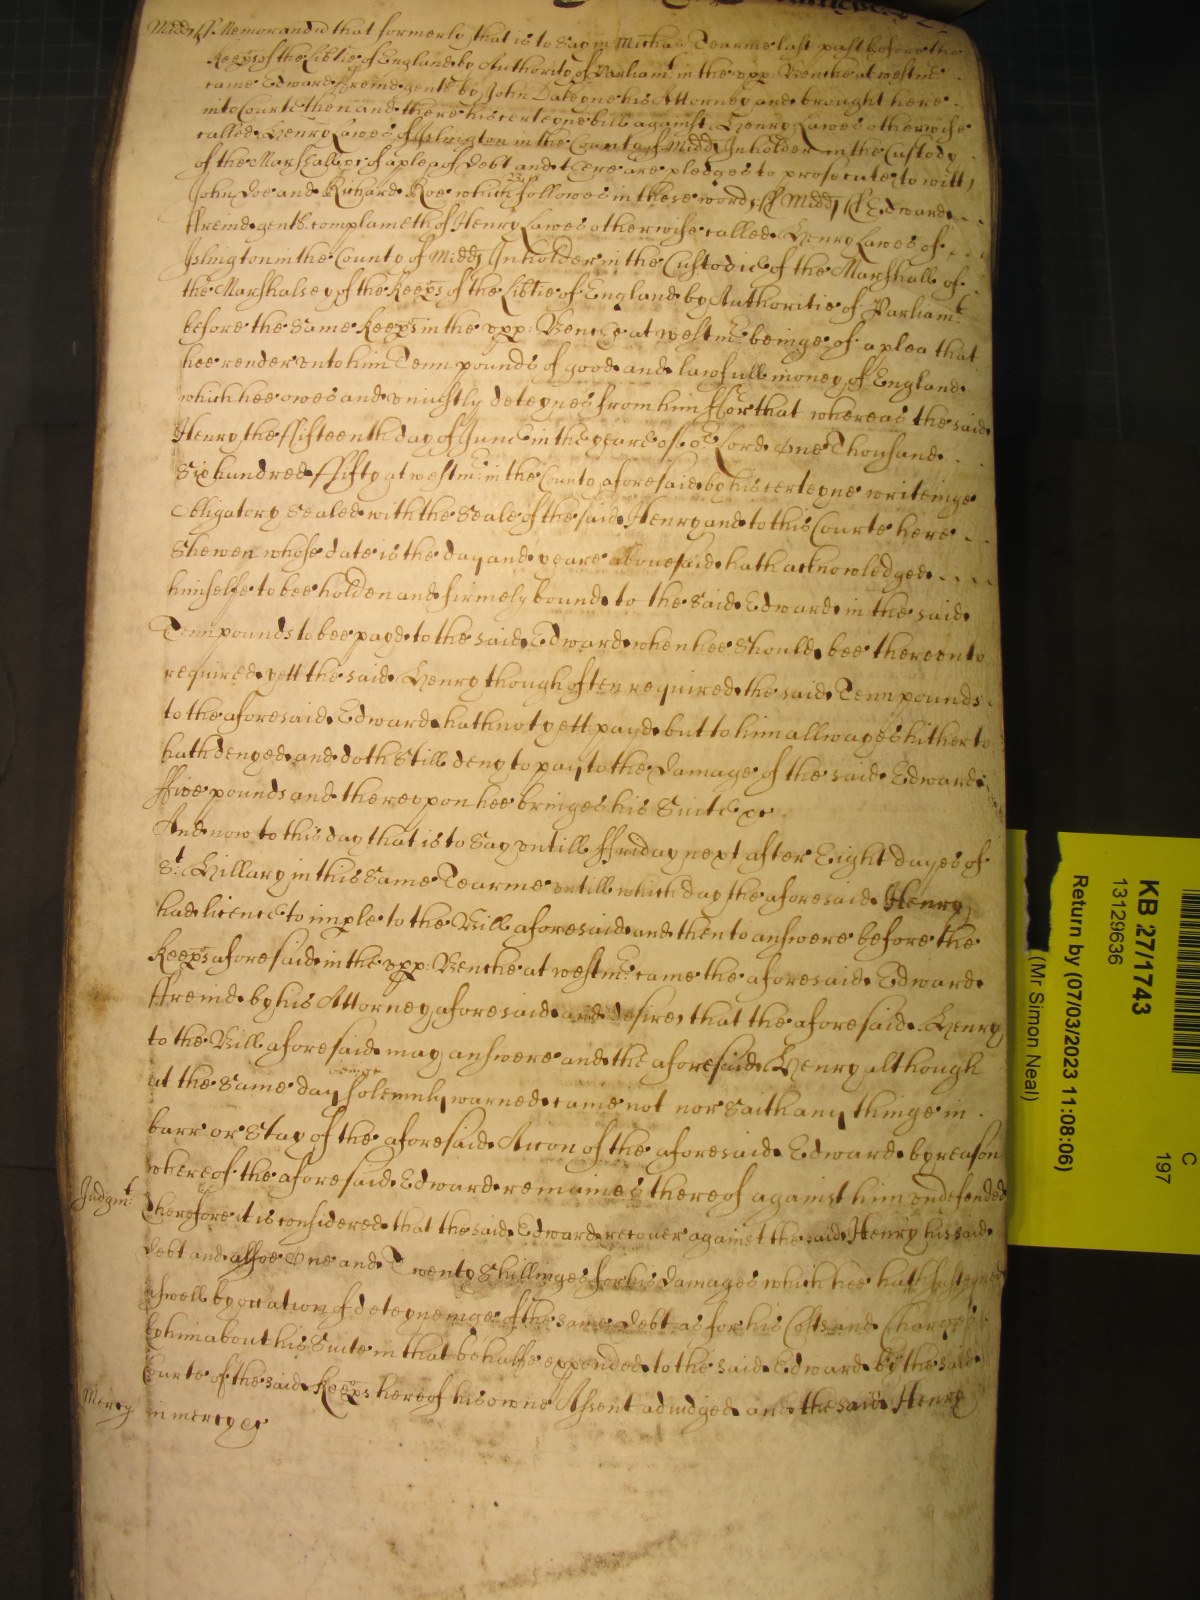 Midds ss Memorandu that formerly that is to say in Michas Tearme last past before the
Keeps of the Libtie of England by Authority of Parliamt in the upp: Benche at westm
came Edward ffreind gent by John Dakeyne his Attorney and brought here
into Courte then and there his certeyne bill against Henry Lawes otherwise
called Henry Lawes of Islington in the County of Midds Inholder in the Custody
of the Marshall &c of a plea of Debt and there are pledges to prosecute to witt
John Doe and Richard Roe which followes in these words ss Midds ss Edward
ffreind gent complaineth of Henry Lawes otherwise called Henry Lawes of
Islington in the County of Midds Inholder in the Custodie of the Marshall of
the Marshalsey of the Keeps of the Libtie of England by Authoritie of Parliamt
before the same Keeps in the upp: Benche at westmr beinge of a plea that
hee render unto him Tenn pounds of good and lawfull money of England
which hee owes and uniustly deteynes from him ffor that whereas the said
Henry the ffifteenth day of June in the yeare of or Lord One Thousand
Six hundred ffifty at westmr in the County aforesaid by his certeyne writeinge
Obligatory Sealed with the Seale of the said Henry and to this Courte here
Shewen whose date is the day and yeare abovesaid hath acknowledged
himselfe to bee holden and firmely bound to the said Edward in the said
Tenn pounds to bee payd to the said Edward when hee should bee thereunto
required yett the said Henry though often required the said Tenn pounds
to the aforesaid Edward hath not yett payd but to him allwayes hitherto
hath denyed and doth still deny to pay to the Damage of the said Edward
ffive pounds and thereupon hee bringes his Suite &c
And now to this day that is to say untill ffriday next after Eight dayes of
St. Hillary in this same Tearme untill which day the aforesaid Henry
had licence to imple to the Bill aforesaid and then to answere before the
Keeps aforesaid in the upp: Benche at westmr came the aforesaid Edward
ffreind by his Attorney aforesaid and desires that the aforesaid Henry
to the Bill aforesaid may answere and the aforesaid Henry although
at the same day beinge solemnly warned came not nor saith any thinge in
barr or Stay of the aforesaid Accon of the aforesaid Edward by reason
whereof the aforesaid Edward remaines thereof against him undefended
Judgmt: Therefore it is considered that the said Edward recover against the said Henry his said
Debt and allsoe One and Twenty Shillinges for his Damages which hee hath susteyned
aswell by occation of deteyneinge of the same Debt as for his Costs and Charges
by him about his Suite in that behalfe expended to the said Edward by the said
Courte of the said Keeps here of his owne Assent adiudged and the said Henry
Mercy in mercy &c
KB 27/1743
13129636
Return by (07/03/2023 11:08:06)
(Mr Simon Neal)
C
197